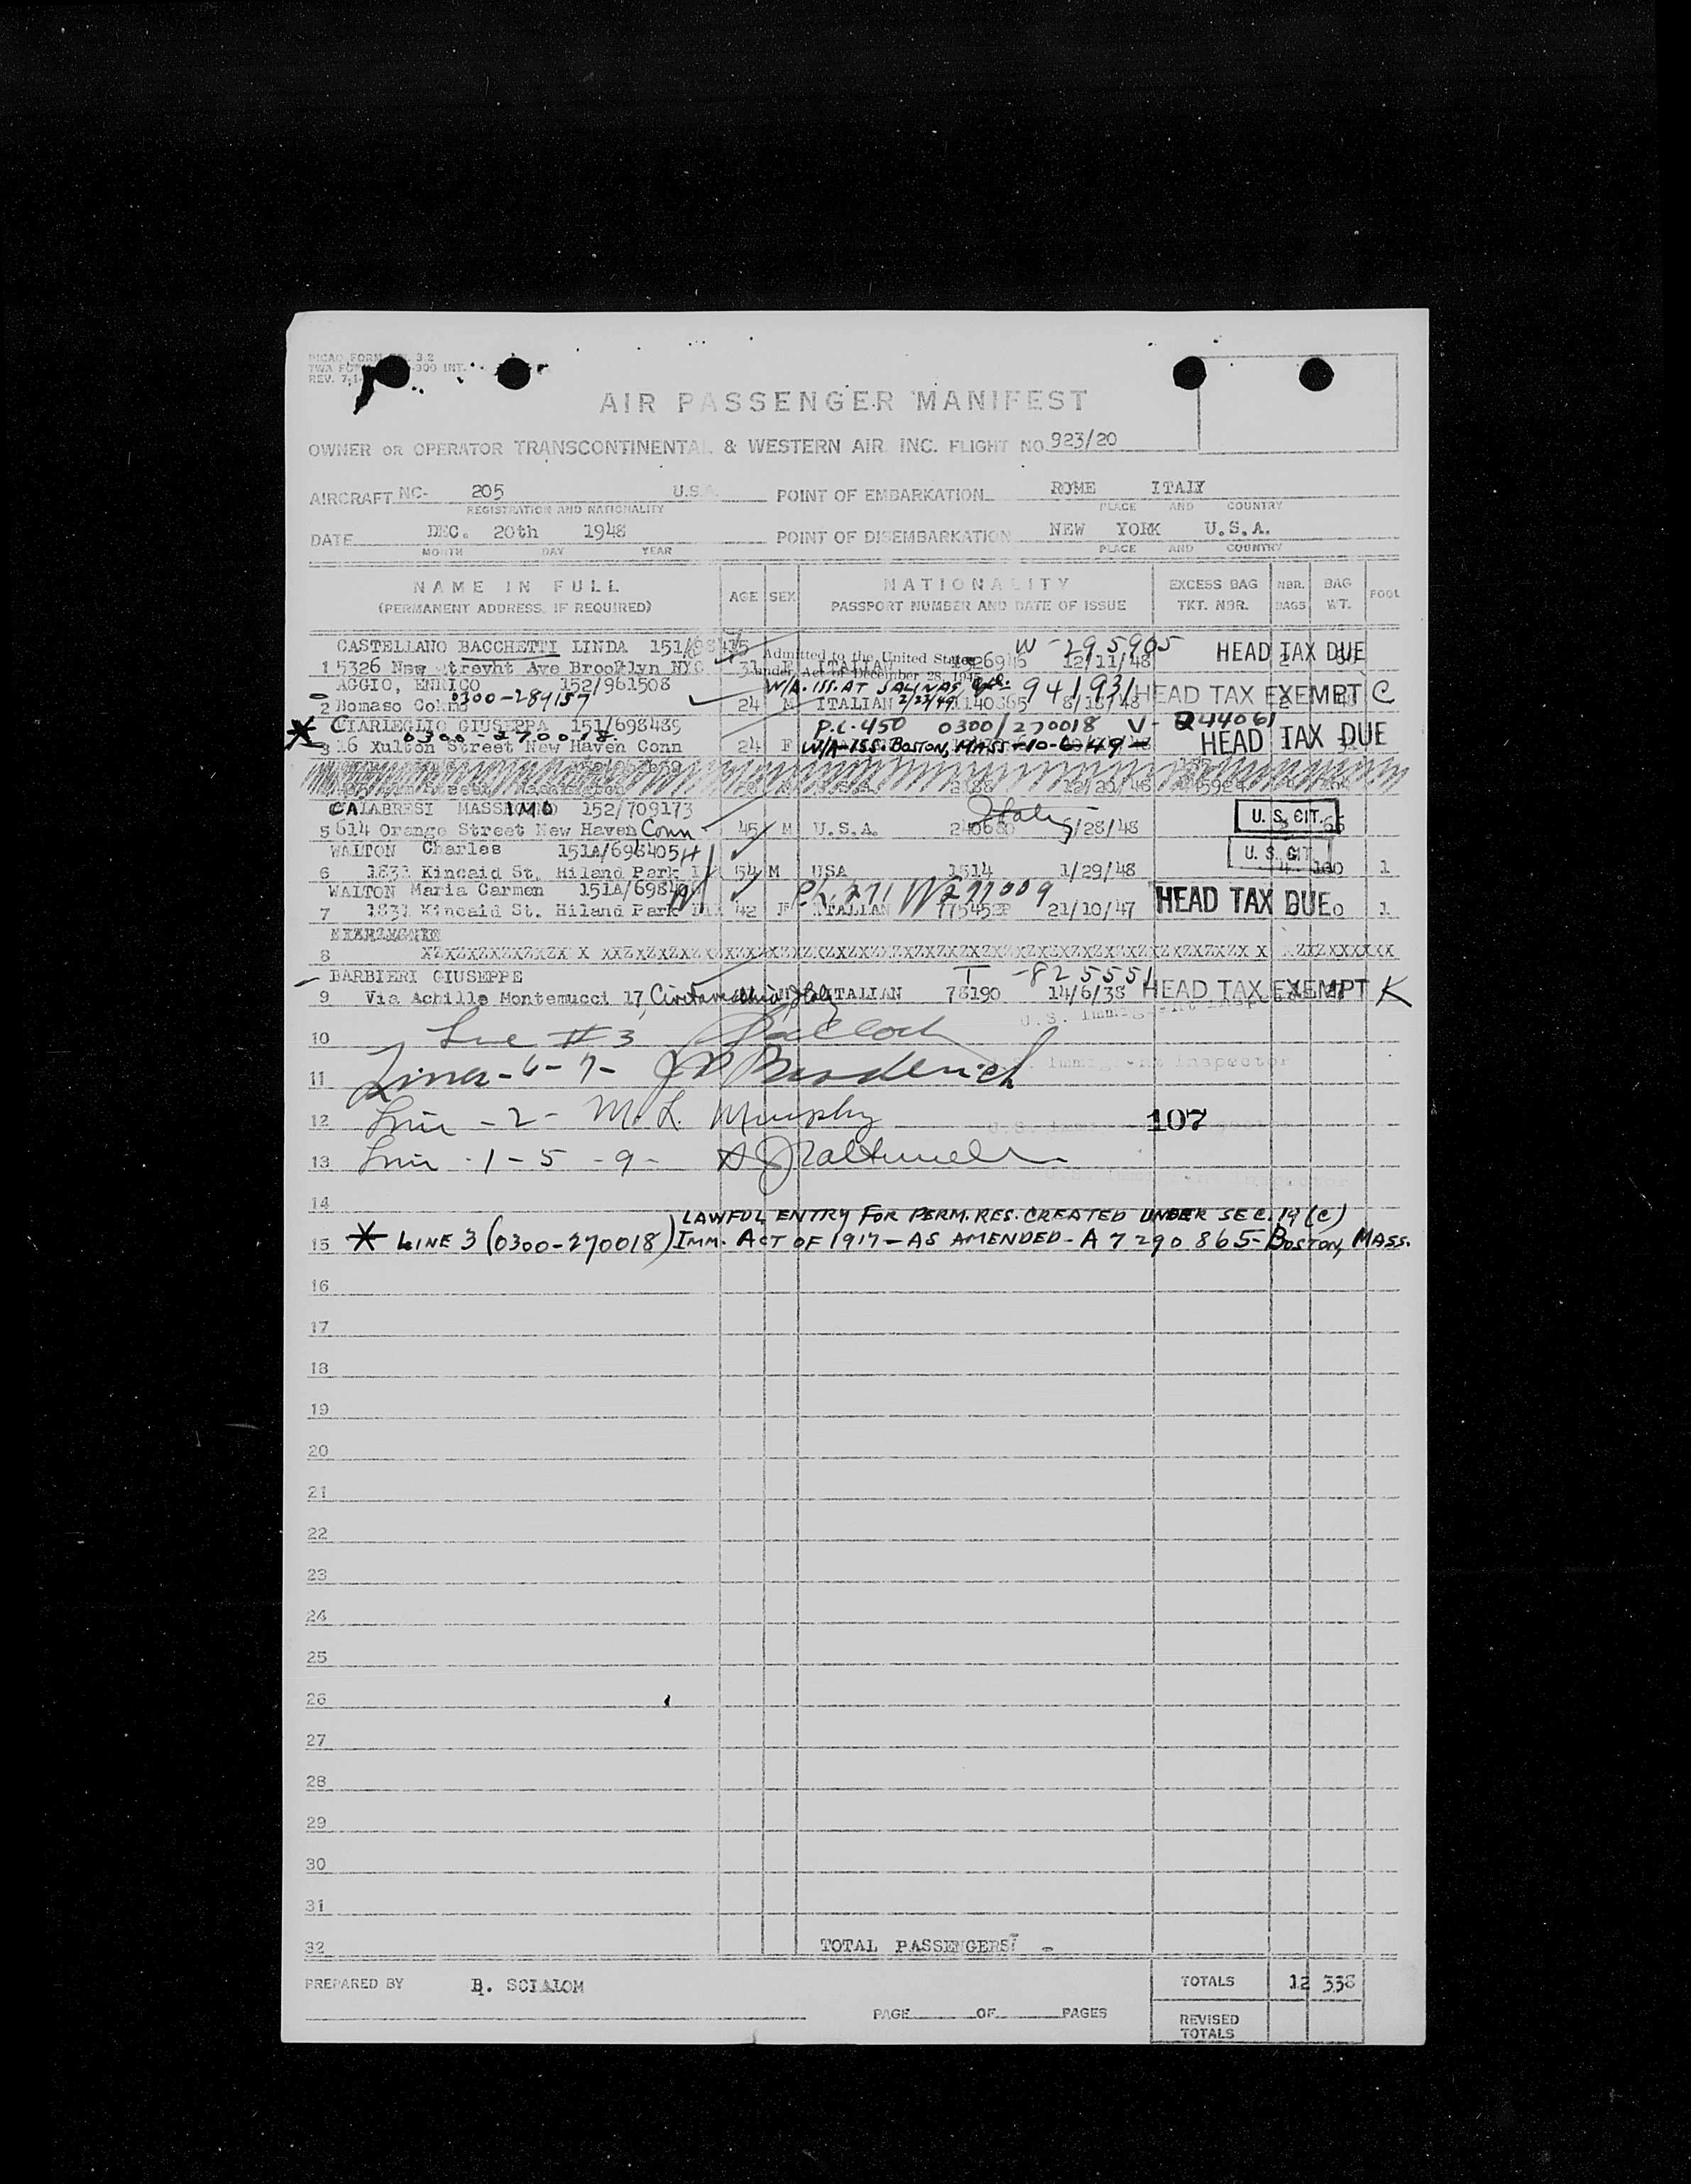 PICAO FORM 3.2
TWA 900 INT.
REV. 7-1-
AIR PASSENGER MANIFEST
OWNER OR OPERATOR TRANSCONTINENTAL & WESTERN AIR. INC. FLIGHT NO. 923/20
AIRCRAFT NC- 205 U.S.A. POINT OF EMBARKATION ROME ITALY
REGISTRATION AND NATIONALITY PLACE AND COUNTRY
DATE DEC. 20th 1948 POINT OF DISEMBARKATION NEW YORK U.S.A.
MONTH DAY YEAR PLACE AND COUNTRY
NAME IN FULL AGE SEX NATIONALITY EXCESS BAG NBR. BAG POOL
(PERMANENT ADDRESS, IF REQUIRED) PASSPORT NUMBER AND DATE OF ISSUE TKT. NBR. BAGS WT.
CASTELLANO BACCHETTI LINDA W-295905 HEAD TAX DUE
Admitted to the United States
1 5326 New Ave Brooklyn NYC 31 F ITALIAN 12/11/48
under Act of December 28, 1945
AGGIO, ENRICO 152/961508 W/A. ISS. AT SALINAS, 941931 HEAD TAX EXEMPT C
0300-289157
2 Bomaso 24 M ITALIAN 2/23/49 8/18/48
* CIARLEGLIO GIUSEPPA 151/698485 P.C.-450 0300/270018 V- Q44061
0300-270018
3 16 Xulton Street New Haven Conn 24 F W/A-ISS. BOSTON, MASS-10-6-49 HEAD TAX DUE
CALABRESI MASSIMO 152/709173 Italy
5 614 Orange Street New Haven Conn 45 M U.S.A. 240680 5/28/48 U. S. CIT.
WALTON Charles 151A/698405 U. S. CIT.
6 1831 Kincaid St. Hiland Park 54 M USA 1514 1/29/48 4 100 1
WALTON Maria Carmen
7 1831 Kincaid St. Hiland Park 42 F ITALIAN 21/10/47 HEAD TAX DUE 1
8
BARBIERI GIUSEPPE T -825551
9 Via Achille Montemucci 17, Civitavecchia Italy ITALIAN 78190 14/6/38 HEAD TAX EXEMPT K
U.S. Immigrant Inspector
10 Line #3
11 Lines-6-7- Broderick
12 Line -2- M. L. Murphy 107
13 Line -1-5-9-
14 LAWFUL ENTRY FOR PERM. RES. CREATED UNDER SEC. 19 (C)
15 * LINE 3 (0300-270018) IMM. ACT OF 1917 - AS AMENDED - A 7 290 865 - BOSTON, MASS.
16
17
18
19
20
21
22
23
24
25
26
27
28
29
30
31
32 TOTAL PASSENGERS: -
PREPARED BY B. SCIALOM TOTALS 12 338
PAGE OF PAGES REVISED TOTALS